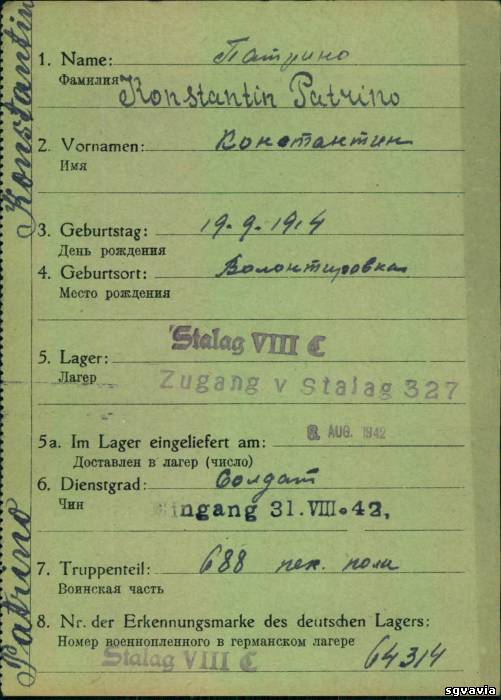 Konstantin
Patrino
1. Name: Патрино
Фамилия Konstantin Patrino
2. Vornamen: Константин
Имя
3. Geburtstag: 19.9.1914
День рождения
4. Geburtsort: Волонтировка
Место рождения
Stalag VIII C
5. Lager:
Лагерь Zugang v Stalag 327
5a. Im Lager eingeliefert am: AUG. 1942
Доставлен в лагерь (число)
6. Dienstgrad: Солдат
Чин Eingang 31. VIII. 42.
7. Truppenteil: 688 пех. полк
Воинская часть
8. Nr. der Erkennungsmarke des deutschen Lagers:
Номер военнопленного в германском лагере
Stalag VIII C 64314
sgvavia